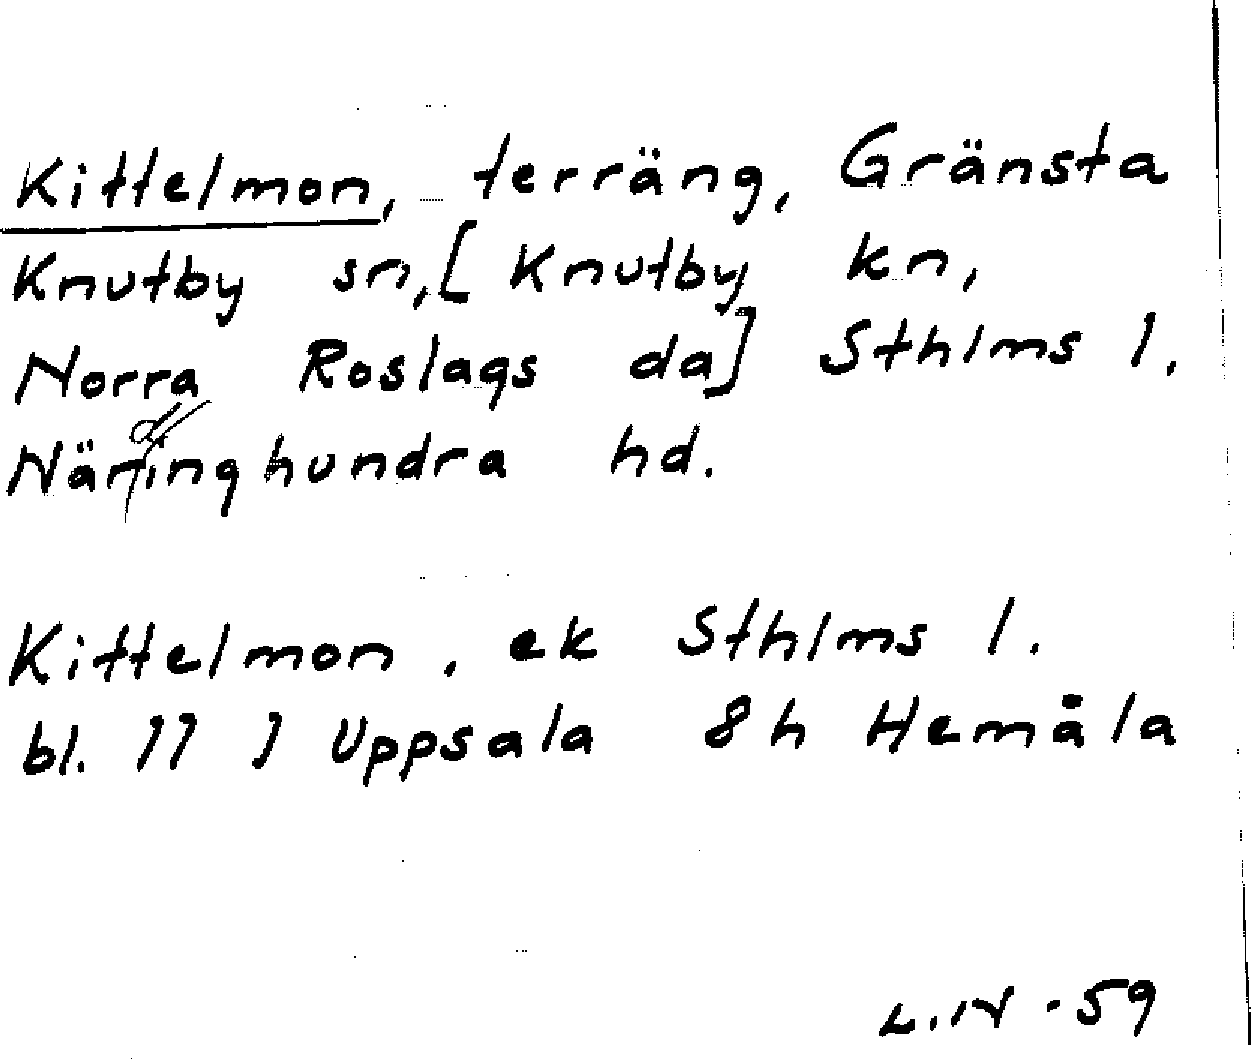 Kittelmon, terräng, Gränsta
Knutby sn, [Knutby kn,
Norra Roslags da] Sthlms l.
Närdinghundra hd.
Kittelmon, ek Sthlms l.
bl. 11 I Uppsala 8h Hemåla
L.IV.59